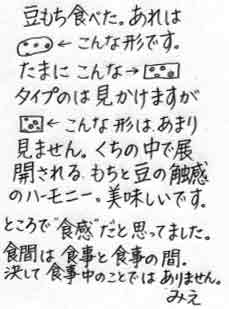 豆もち食べた。あれは
←こんな形です。
たまにこんな→
タイプのは見かけますが
←こんな形は、あまり
見ません。くちの中で展
開される、もちと豆の触感
のハーモニー。美味しいです。
ところで"食感"だと思ってました。
食間は食事と食事の間。
決して食事中のことではありません。
みえ